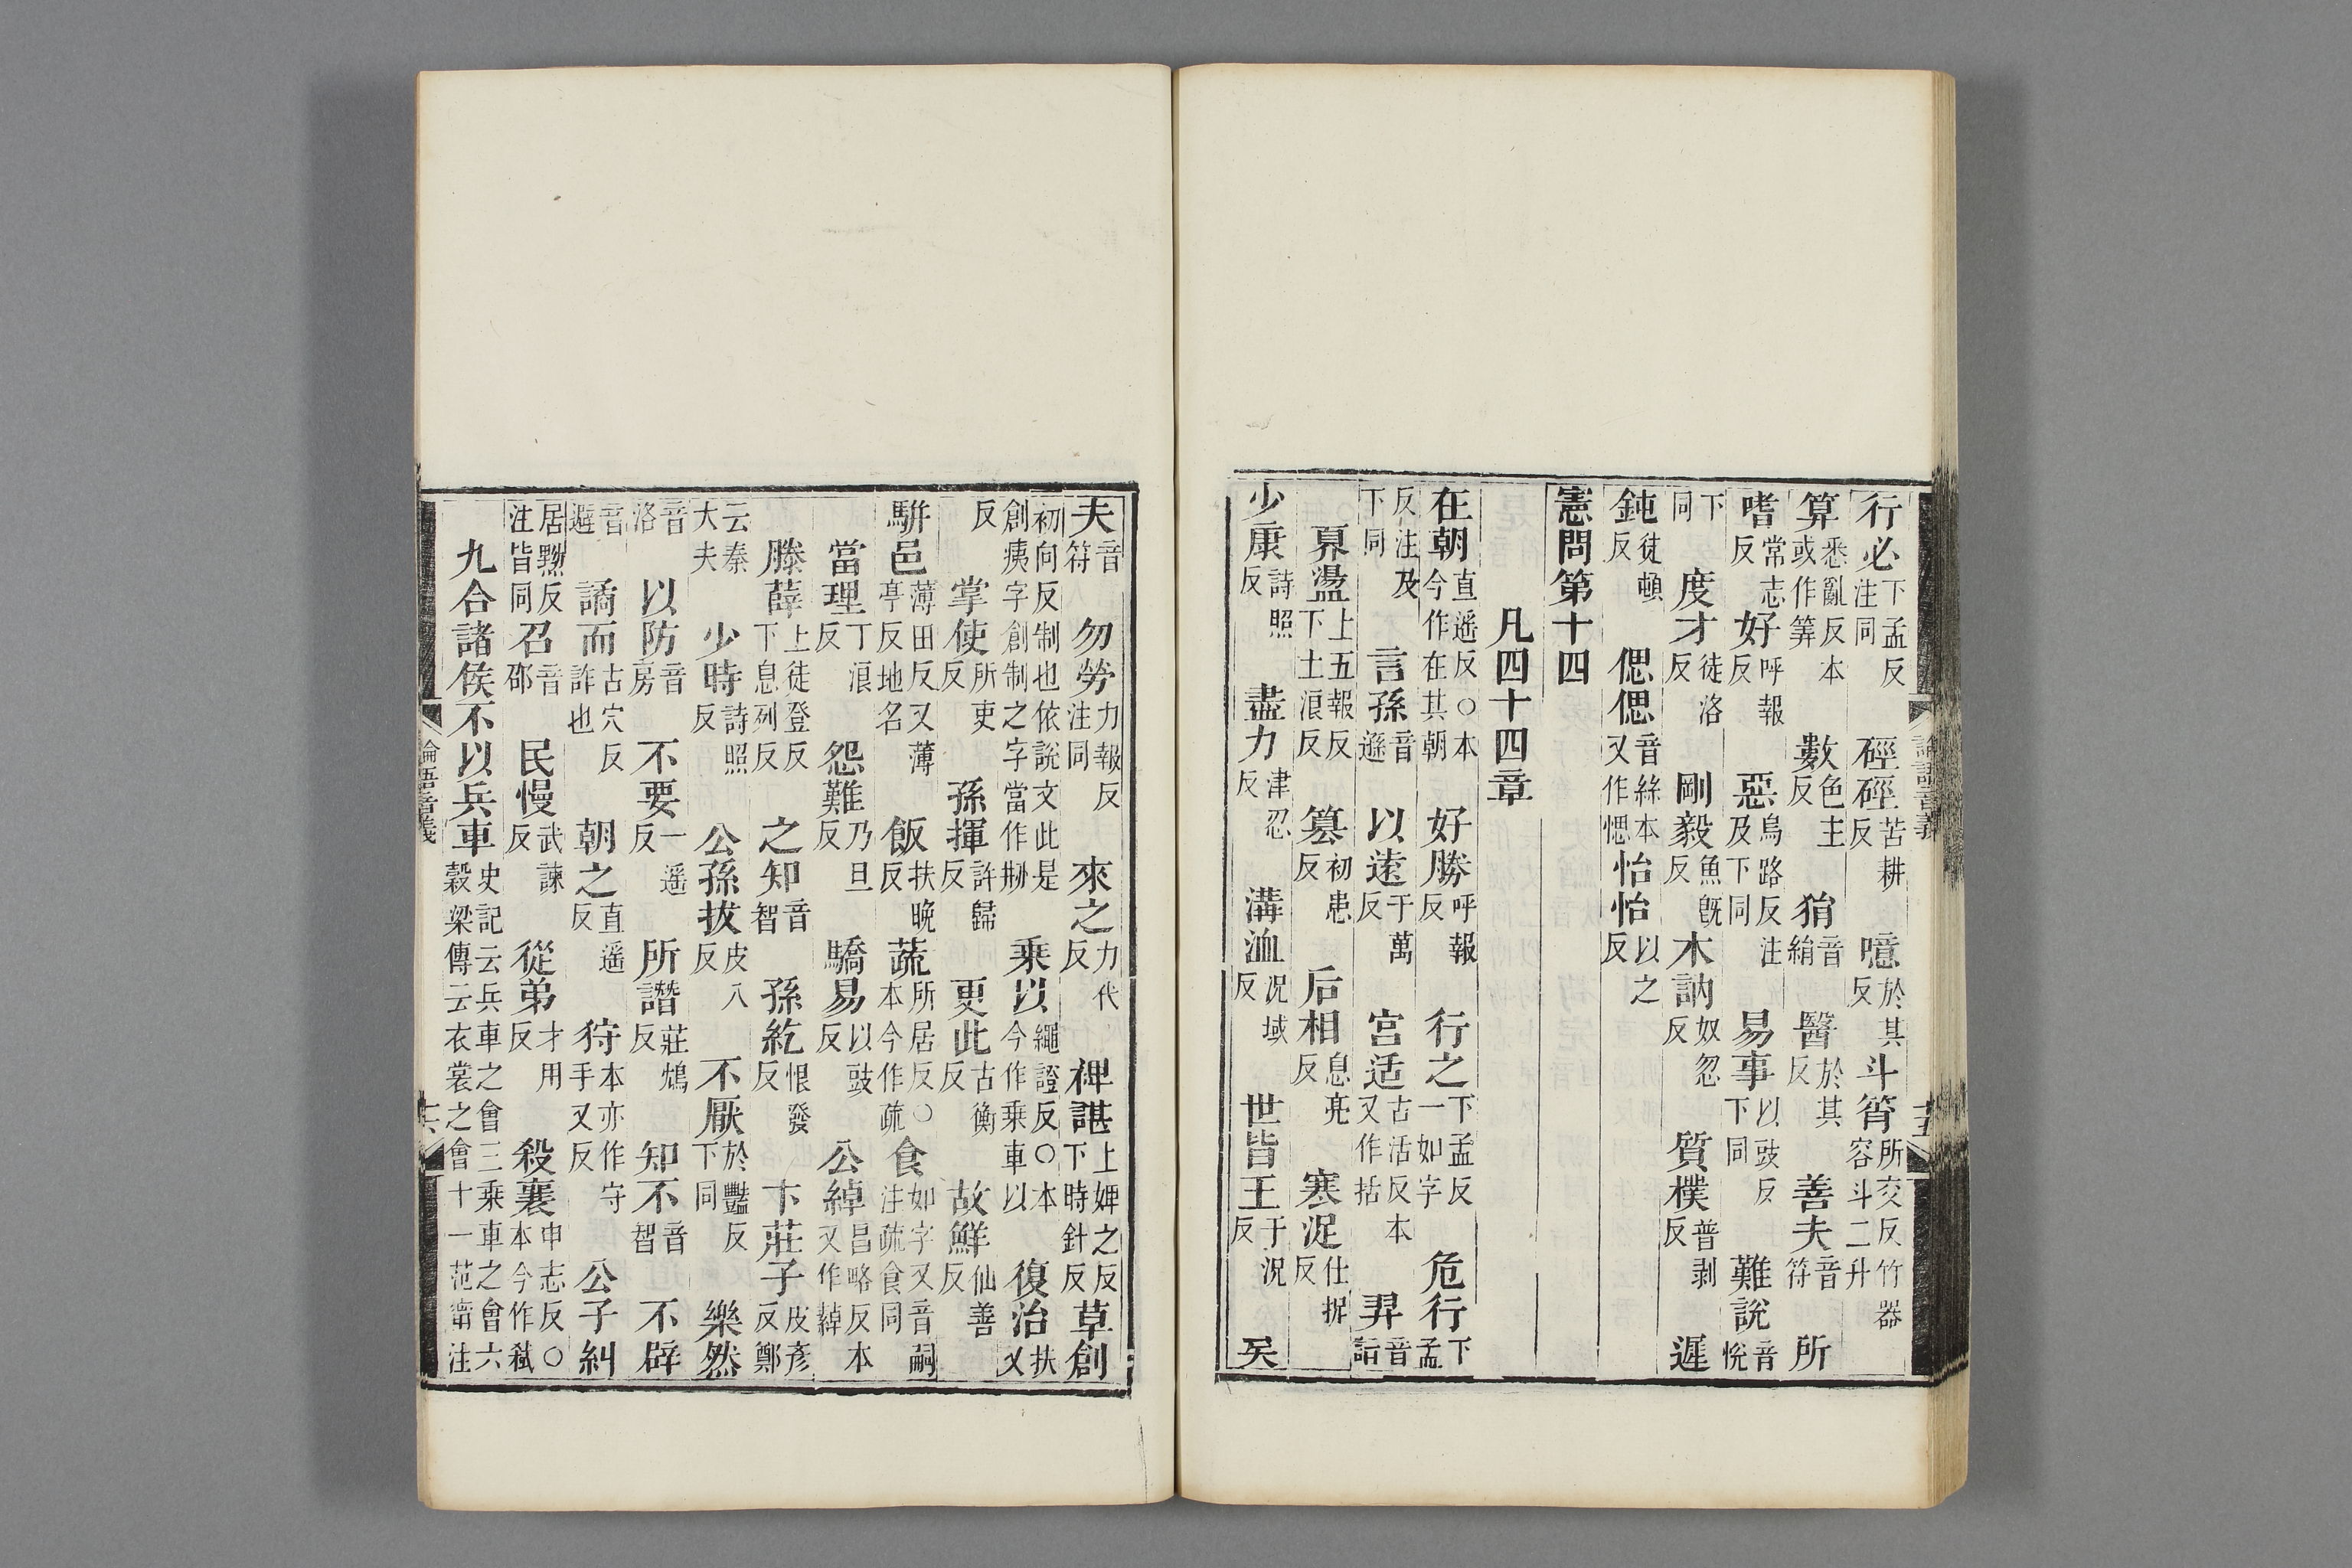 行必下孟反注同 硜硜苦耕反 噫於其反 斗筲所交反竹器容斗二升
算悉亂反本或作筭 數色主反 狷音絹 醫於其反 善夫音符 所
嗜常志反 好呼報反 惡烏路反注及下同 易事以豉反下同 難說音悅
下同 度才徒洛反 剛毅魚旣反 木訥奴忽反 質樸普剥反 遲
鈍徒頓反 偲偲音絲本又作愢 怡怡以之反
憲問第十四
凡四十四章
在朝直遥反○本今作在其朝 好勝呼報反 行之下孟反一如字 危行下孟
反注及下同 言孫音遜 以遠于萬反 宮适古活反本又作括 羿音詣
奡盪上五報反下土浪反 篡初患反 后相息亮反 寒浞仕捉反
少康詩照反 盡力津忍反 溝洫況域反 世皆王于況反 矣
夫音符 勿勞力報反注同 來之力代反 裨諶上婢之反下時針反 草創
初向反制也依說文此是創痍字創制之字當作刱 乘以繩證反○本今作乘車以 復治扶又
反 掌使所吏反 孫揮許歸反 更此古衡反 故鮮仙善反
駢邑薄田反又薄亭反地名 飯扶晚反 蔬所居反○本今作疏 食如字又音嗣注疏食同
當理丁浪反 怨難乃旦反 驕易以豉反 公綽昌略反本又作繛
滕薛上徒登反下息列反 之知音智 孫紇恨發反 卞莊子皮彥反鄭
云秦大夫 少時詩照反 公孫拔皮八反 不厭於豔反下同 樂然
音洛 以防音房 不要一遥反 所譖莊鴆反 知不音智 不辟
音避 譎而古穴反詐也 朝之直遥反 狩本亦作守手又反 公子糾
居黝反注皆同 召音邵 民慢武諫反 從弟才用反 殺襄申志反○本今作弒
九合諸侯不以兵車史記云兵車之會三乘車之會六穀梁傳云衣裳之會十一范甯注
論語音義
十五
論語音義
十六